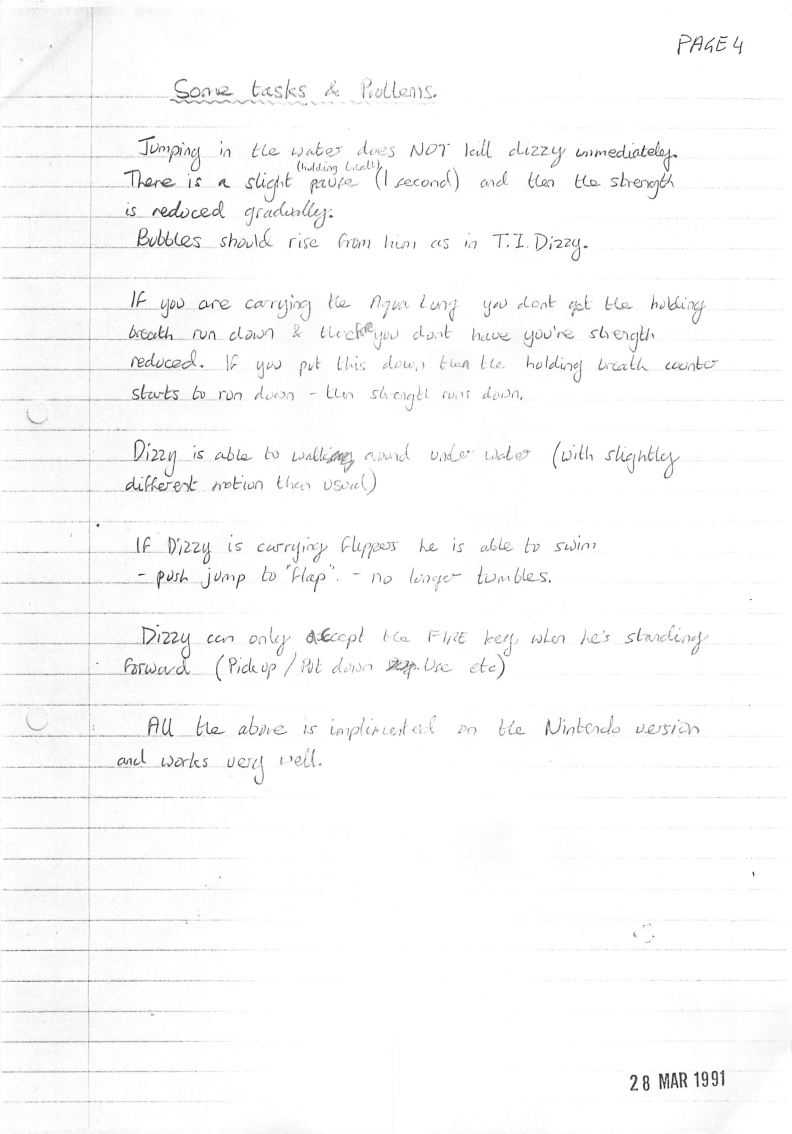 PAGE 4
Some tasks & Problems.
Jumping in the water does NOT kill dizzy immediately.
(holding breath)
There is a slight pause (1 second) and then the strength
is reduced gradually.
Bubbles should rise from him as in T.I. Dizzy.
If you are carrying the Aqua Lung you dont get the holding
breath run down & therefore you dont have you're strength
reduced. If you put this down then the holding breath counter
starts to run down - then strength runs down.
Dizzy is able to walk around under water (with slightly
different motion than usual)
If Dizzy is carrying flippers he is able to swim
- push jump to "flap". - no longer tumbles.
Dizzy can only accept the FIRE key when he's standing
forward (Pick up / Put down Use etc)
All the above is implimented on the Nintendo version
and works very well.
28 MAR 1991